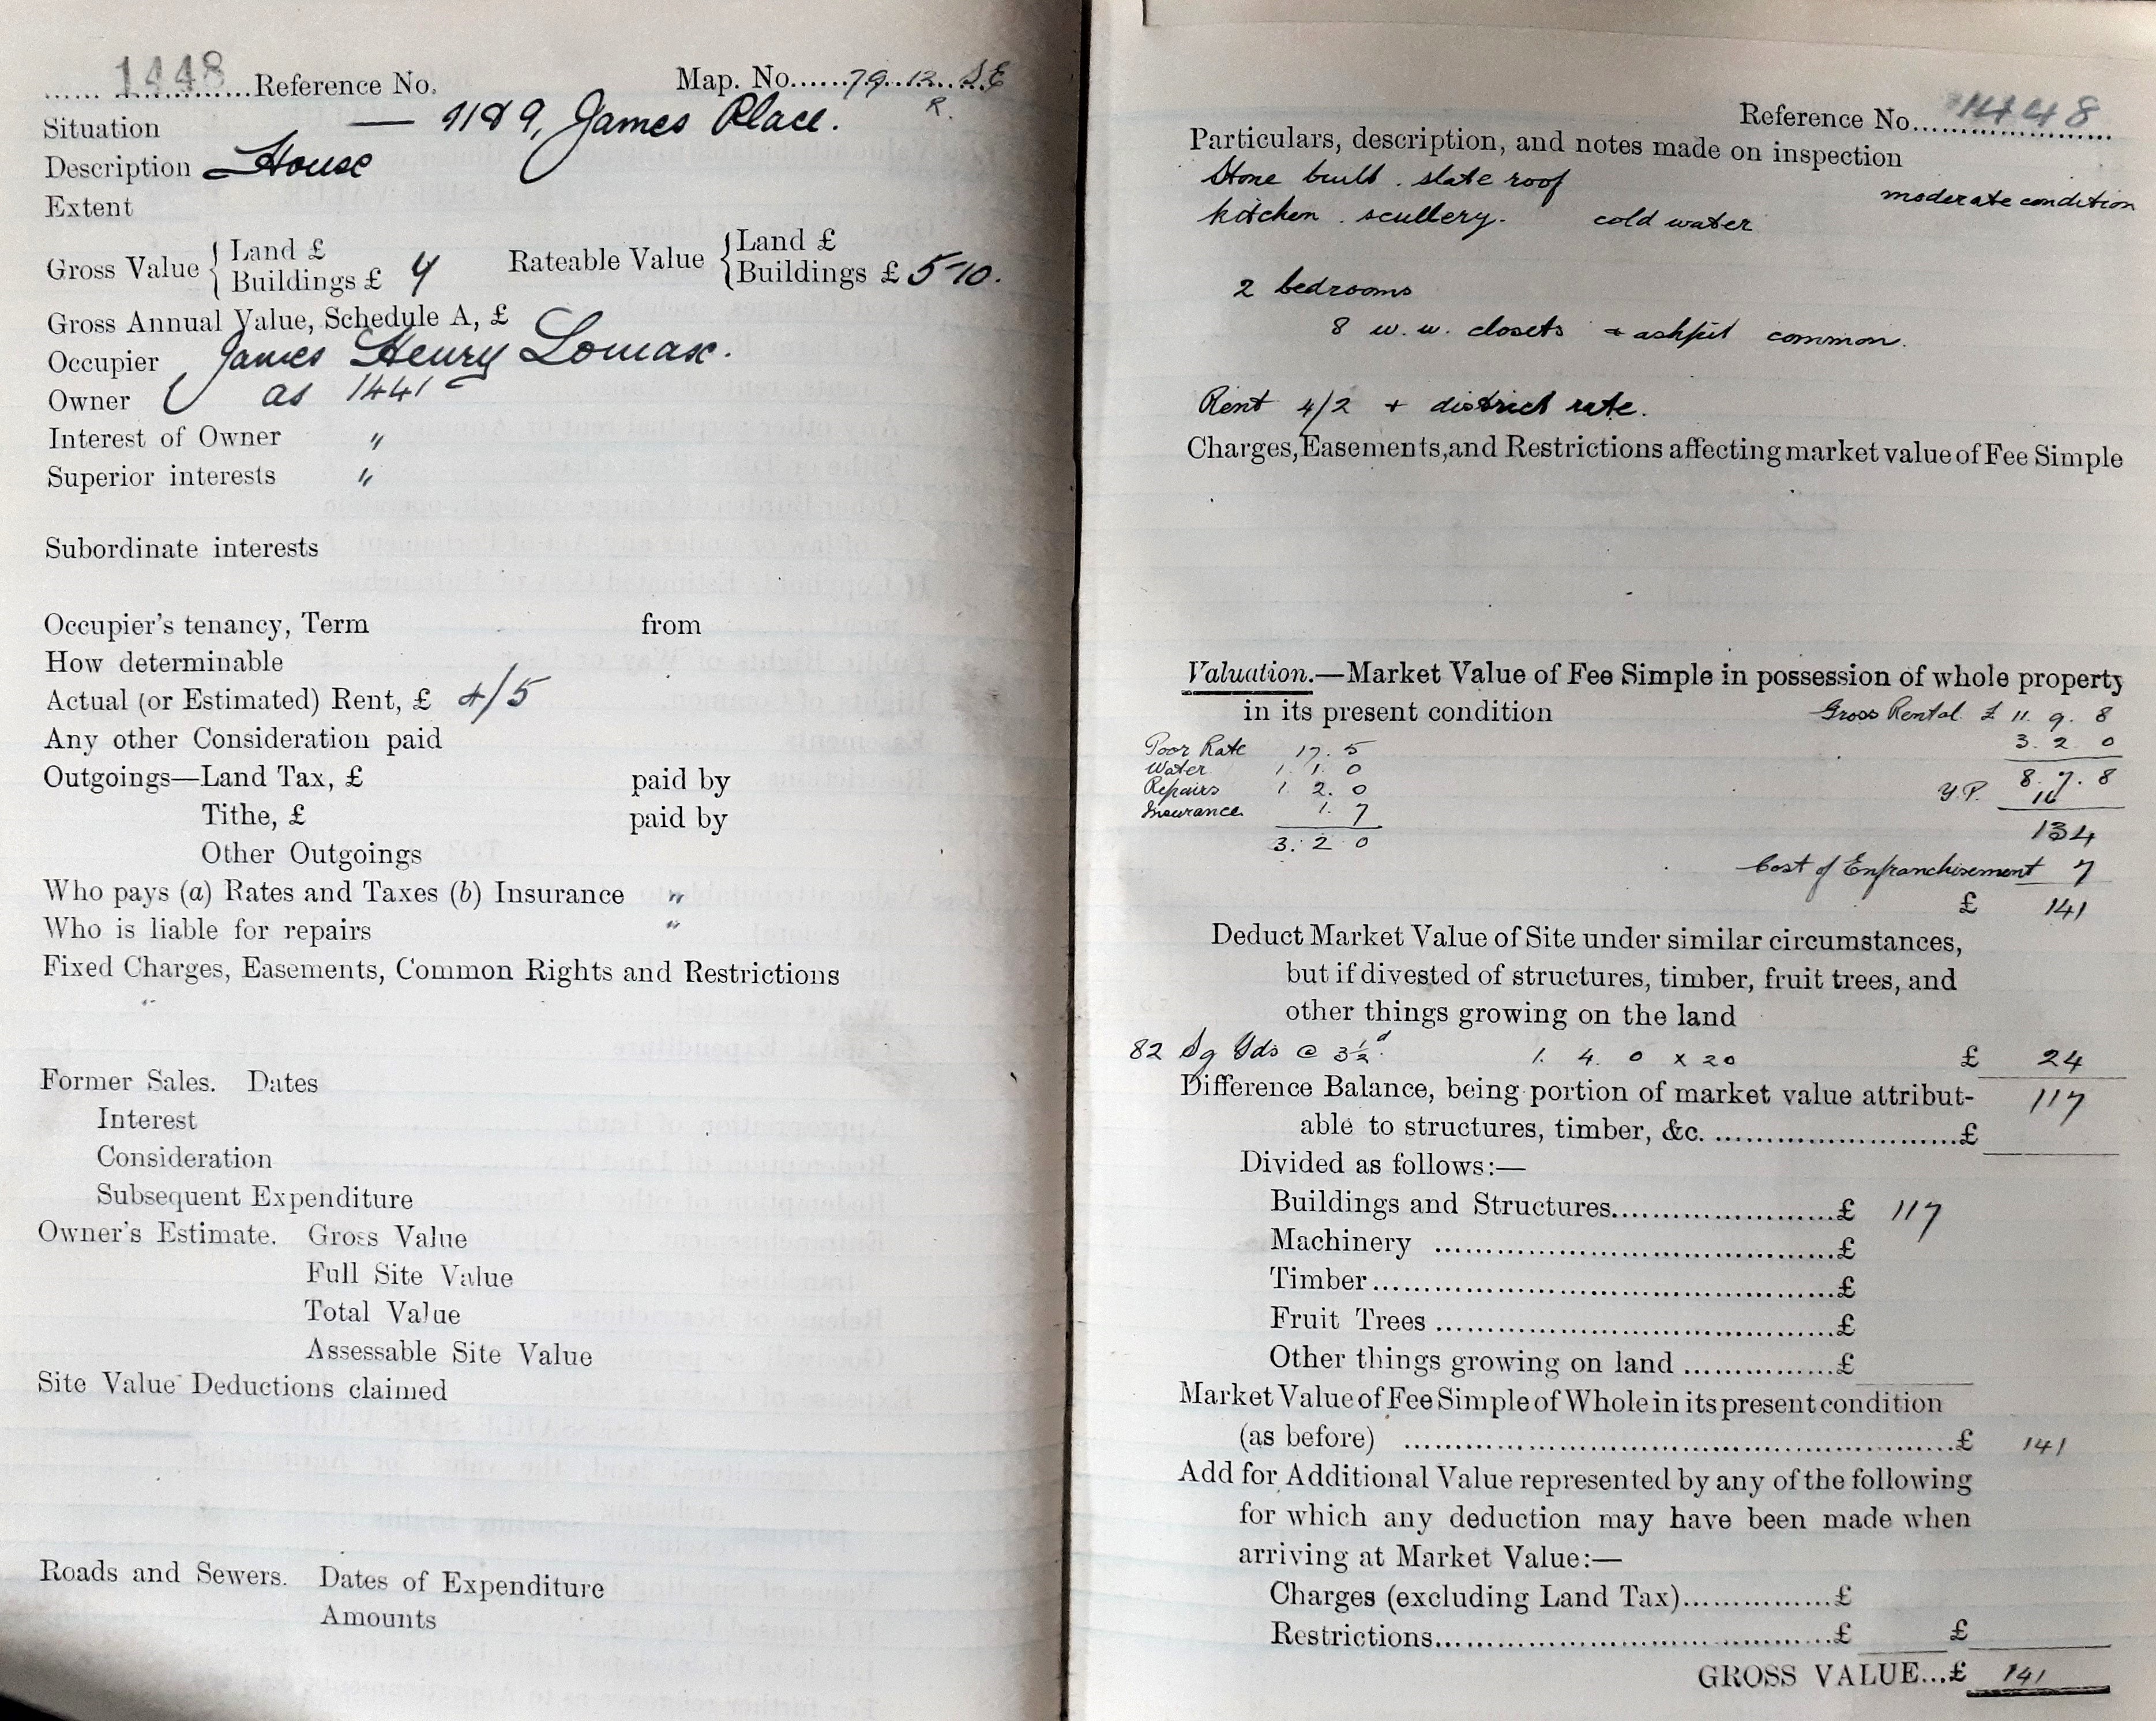 1448 Reference No. Map. No. 79.12. S.E
R.
Situation — 7189, James Place.
Description House
Extent
Gross Value { Land £ Rateable Value { Land £
Buildings £ 7 Buildings £ 5-10.
Gross Annual Value, Schedule A, £
Occupier James Henry Lomax.
Owner as 1441
Interest of Owner "
Superior interests "
Subordinate interests
Occupier's tenancy, Term from
How determinable
Actual (or Estimated) Rent, £ 4/5
Any other Consideration paid
Outgoings—Land Tax, £ paid by
Tithe, £ paid by
Other Outgoings
Who pays (a) Rates and Taxes (b) Insurance "
Who is liable for repairs "
Fixed Charges, Easements, Common Rights and Restrictions
"
Former Sales. Dates
Interest
Consideration
Subsequent Expenditure
Owner's Estimate. Gross Value
Full Site Value
Total Value
Assessable Site Value
Site Value Deductions claimed
Roads and Sewers. Dates of Expenditure
Amounts
Reference No. 1448
Particulars, description, and notes made on inspection
Stone built. slate roof moderate condition
kitchen. scullery. cold water
2 bedrooms
8 w.w. closets + ashpit common.
Rent 4/2 + district rate.
Charges, Easements, and Restrictions affecting market value of Fee Simple
Valuation.—Market Value of Fee Simple in possession of whole property
in its present condition Gross Rental £ 11. 9. 8
Poor Rate 17. 5 3. 2. 0
Water 1. 1. 0 8. 7. 8
Repairs 1. 2. 0 Y.P. 16
Insurance 1. 7 134
3. 2. 0
Cost of Enfranchisement 7
£ 141
Deduct Market Value of Site under similar circumstances,
but if divested of structures, timber, fruit trees, and
other things growing on the land
82 Sq Yds @ 3½d. 1. 4. 0 x 20 £ 24
Difference Balance, being portion of market value attribut- 117
able to structures, timber, &c. £
Divided as follows:—
Buildings and Structures £ 117
Machinery £
Timber £
Fruit Trees £
Other things growing on land £
Market Value of Fee Simple of Whole in its present condition
(as before) £ 141
Add for Additional Value represented by any of the following
for which any deduction may have been made when
arriving at Market Value:—
Charges (excluding Land Tax) £
Restrictions £ £
GROSS VALUE...£ 141